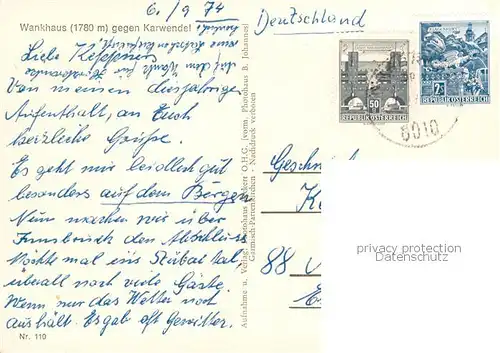 6./9 74
Deutschland
Wankhaus (1780 m) gegen Karwendel
Liebe
Von meinem diesjährigen
Aufenthalt, an Euch
herzliche Grüsse.
Es geht mir leidlich gut
besonders auf dem Bergen
Nun machen wir über
Innsbruck den Abschluss
Möchte mal ins Stubaital,
überall noch viele Gäste.
Wenn nur das Wetter noch
aushält. Es gab oft Gewitter.
Nr. 110
Aufnahme u. Verlag: Photohaus Beckert O.H.G., (vorm. Photohaus B. Johannes)
Garmisch-Partenkirchen - Nachdruck verboten
50
REPUBLIK ÖSTERREICH
2
REPUBLIK ÖSTERREICH
6010
88
privacy protection
Datenschutz